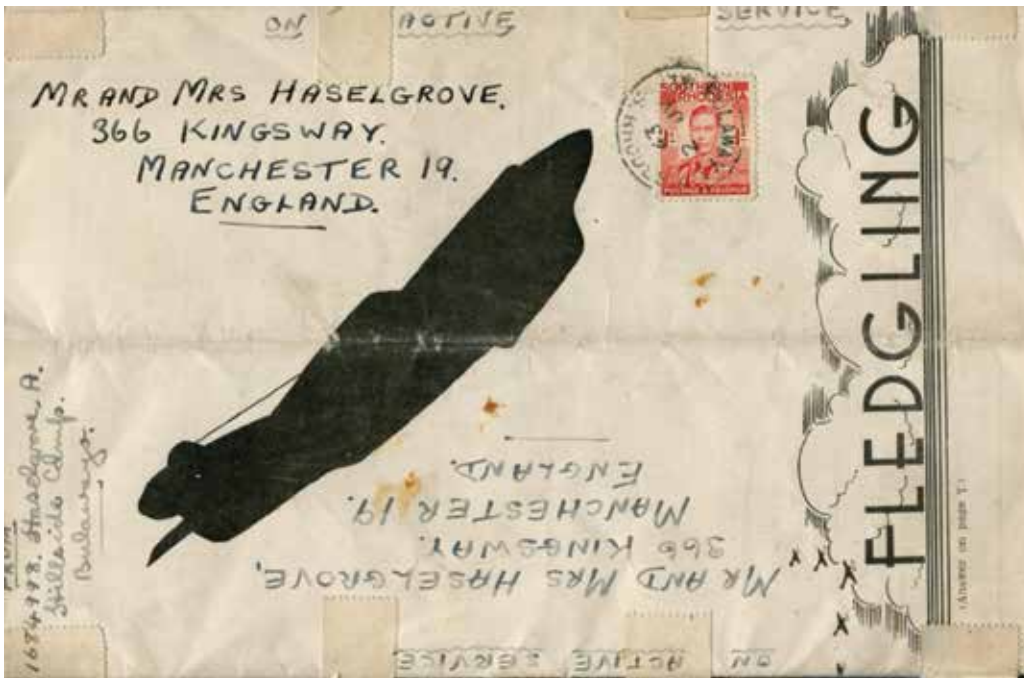 ON ACTIVE SERVICE
MR AND MRS HASELGROVE.
366 KINGSWAY.
MANCHESTER 19.
ENGLAND.
SOUTHERN
RHODESIA
FLEDGLING
(Answer on page
FROM
Haselgrove. A.
Hillside Camp.
Bulawayo.
MR AND MRS HASELGROVE,
366 KINGSWAY.
MANCHESTER 19.
ENGLAND.
ON ACTIVE SERVICE